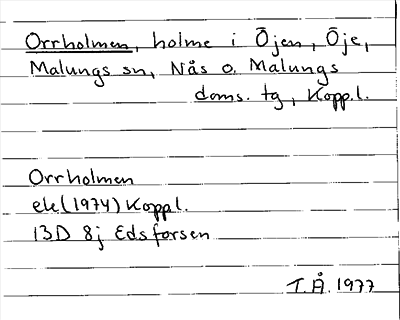 Orrholmen, holme i Öjen, Öje,
Malungs sn, Nås o. Malungs
doms. tg, Kopp.l.
Orrholmen
ek(1974) Koppl.
13D 8j Edsforsen
T.Å. 1977